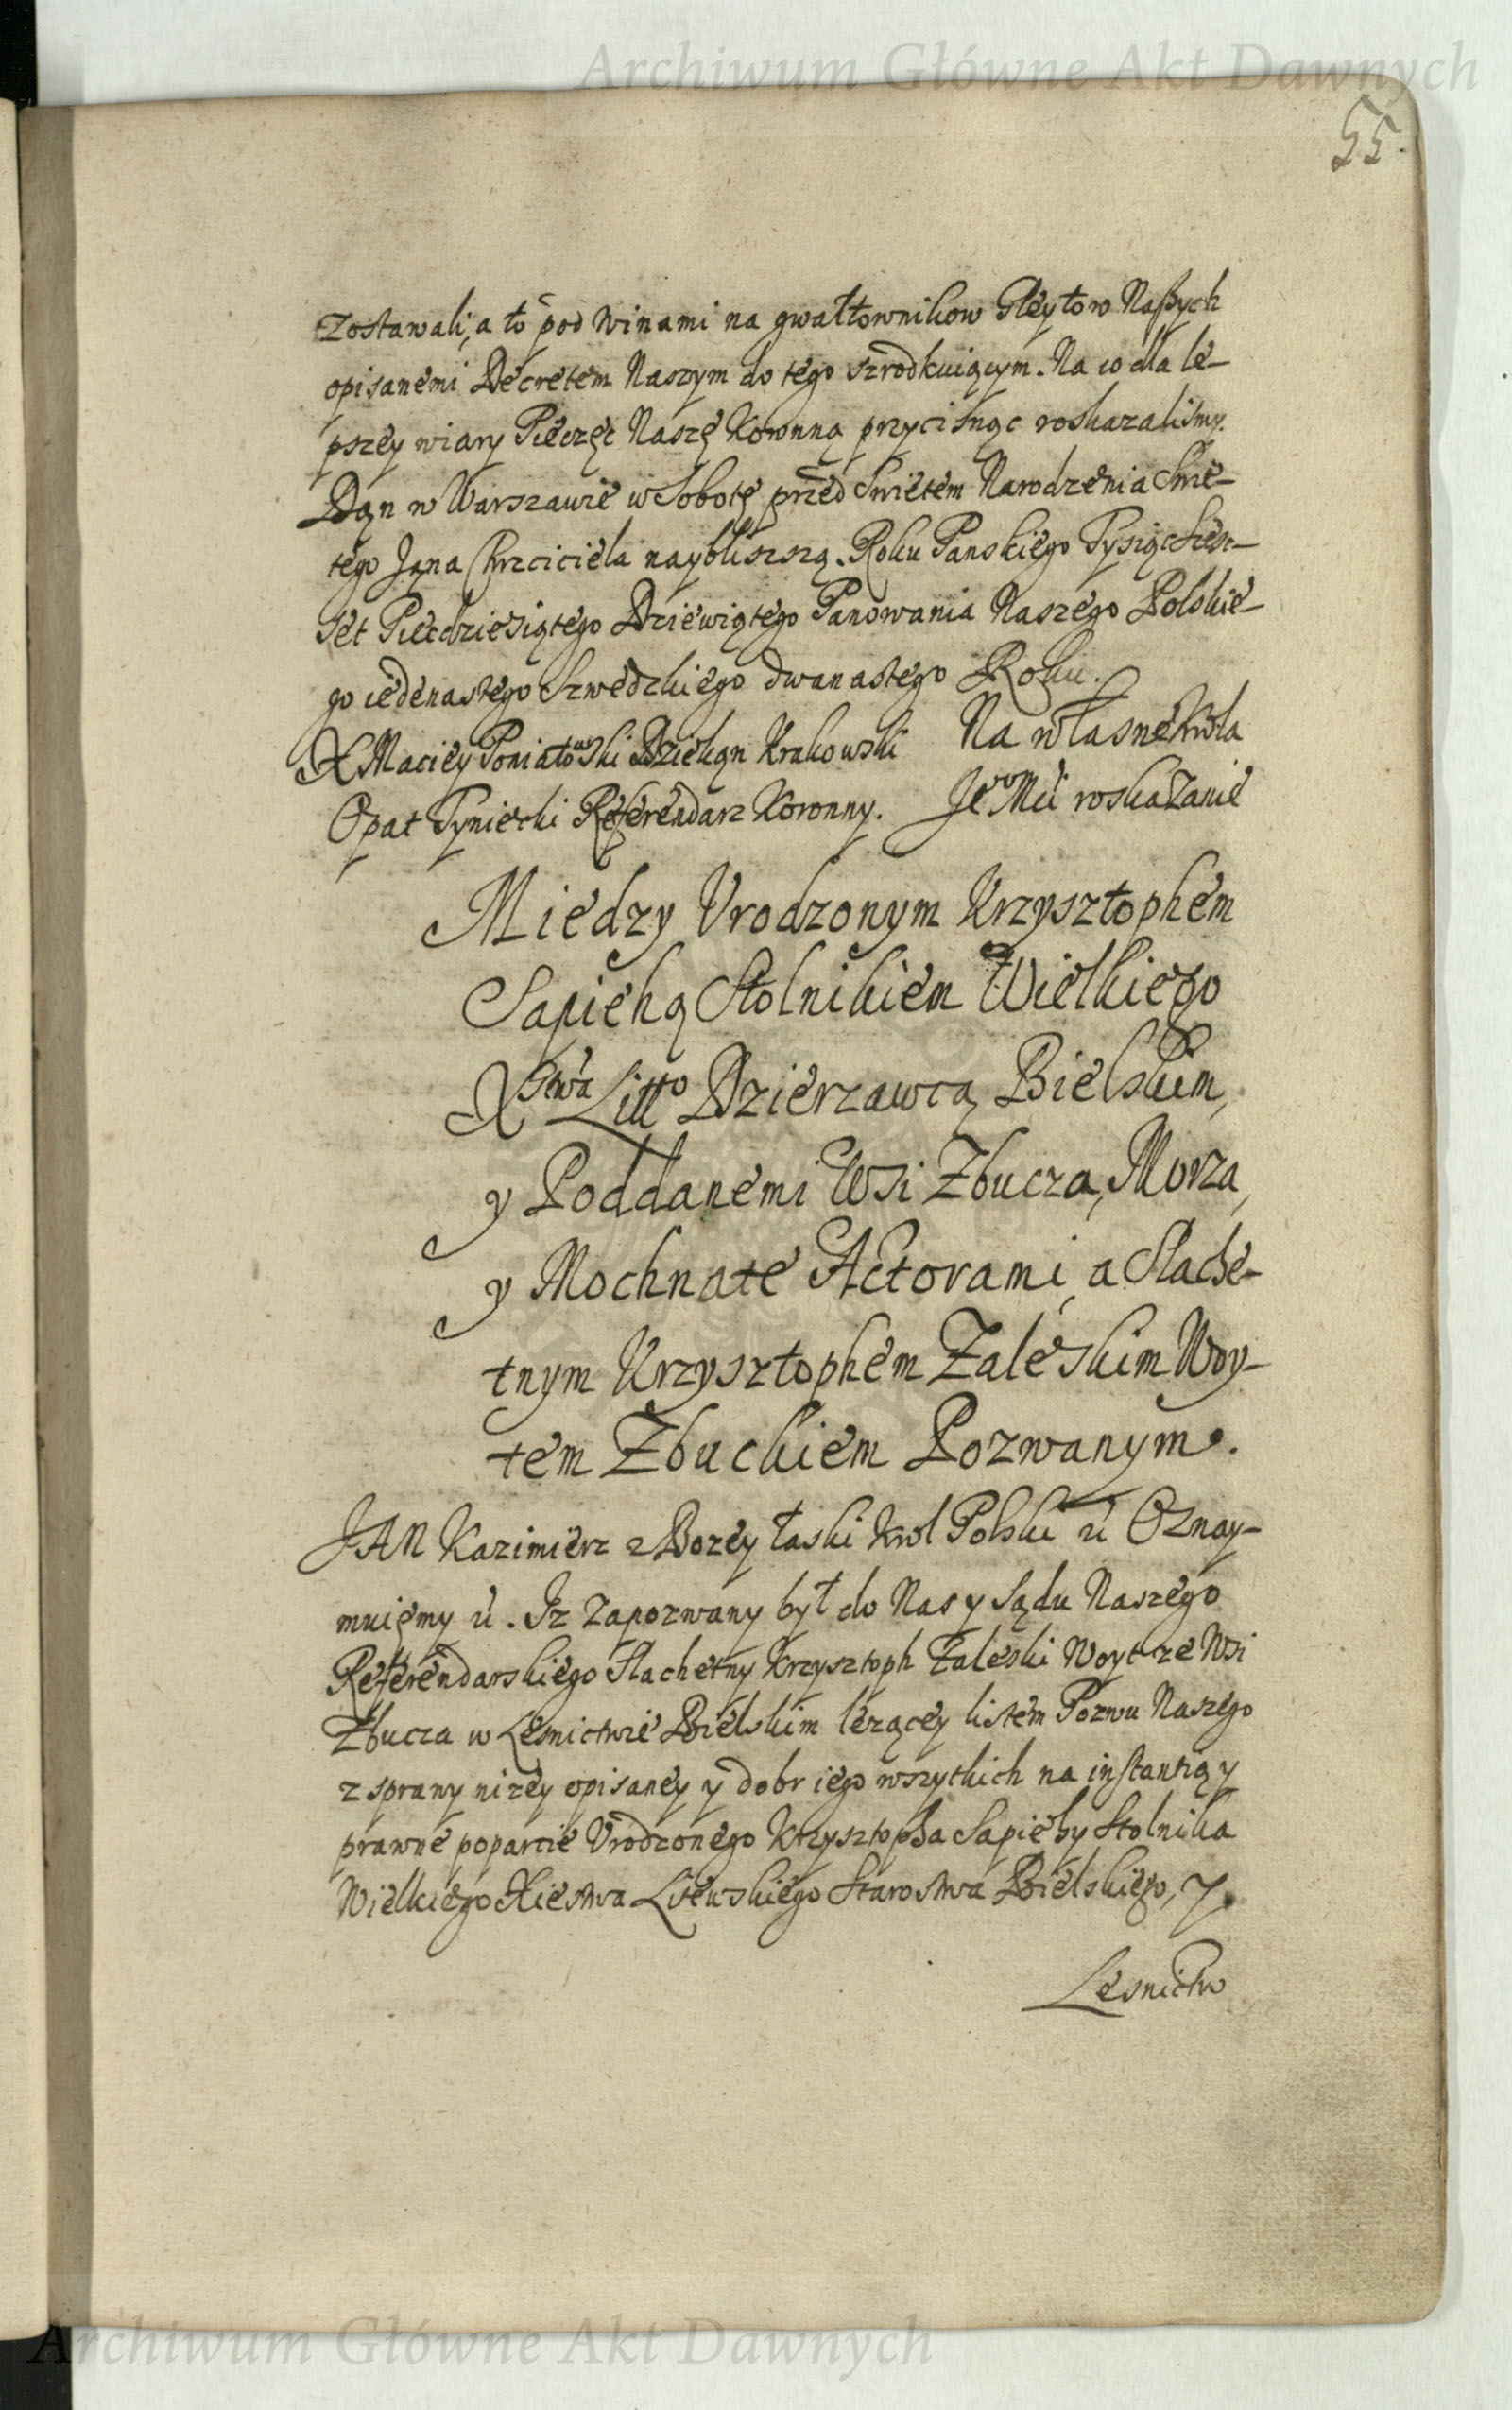 Archiwum Główne Akt Dawnych
55.
zostawali, a to pod winami na gwałtownikow Gleytow Naszych
opisanemi Decretem Naszym do tego szrodkuiącym. Na co dla le-
pszey wiary Pieczęc Naszę Koronną przycisnąc roskazalismy.
Dan w Warszawie w Sobotę przed Swietem Narodzenia Swie-
tego Jana Chrzciciela naybliszszą. Roku Panskiego Tysiąc Szesc-
set Piecdziesiątego Dziewiątego Panowania Naszego Polskie-
go iedenastego Szwedzkiego dwanastego Roku.
X Maciey Poniatowski Dziekan Krakowski Na własne Krola
Opat Tyniecki Referendarz Koronny. Je° Mći roskazanie
Miedzy Vrodzonym Krzysztophem
Sapiehą Stolnikiem Wielkiego
Xstwa Litto Dzierzawcą Bielskim,
y Poddanemi Wsi Zbucza, Morza,
y Mochnate Actorami, a Slache-
tnym Krzysztophem Zaleskim Woy-
tem Zbuckiem Pozwanym.
JAN Kazimierz z Bozey łaski Krol Polski ú Oznay-
muięmy ú. Iz zapozwany był do Nas y Sądu Naszego
Referendarskiego Slachetny Krzysztoph Zaleski Woyt ze Wsi
Zbucza w Lesnictwie Bielskim lezącey listem Pozwu Naszego
z sprawy nizey opisaney y dobr iego wszytkich na instantią y
prawne poparcie Vrodzonego Krzysztopha Sapiehy Stolnika
Wielkiego Xiestwa Litewskiego Starostwa Bielskiego, y
Lesnictw
Archiwum Główne Akt Dawnych